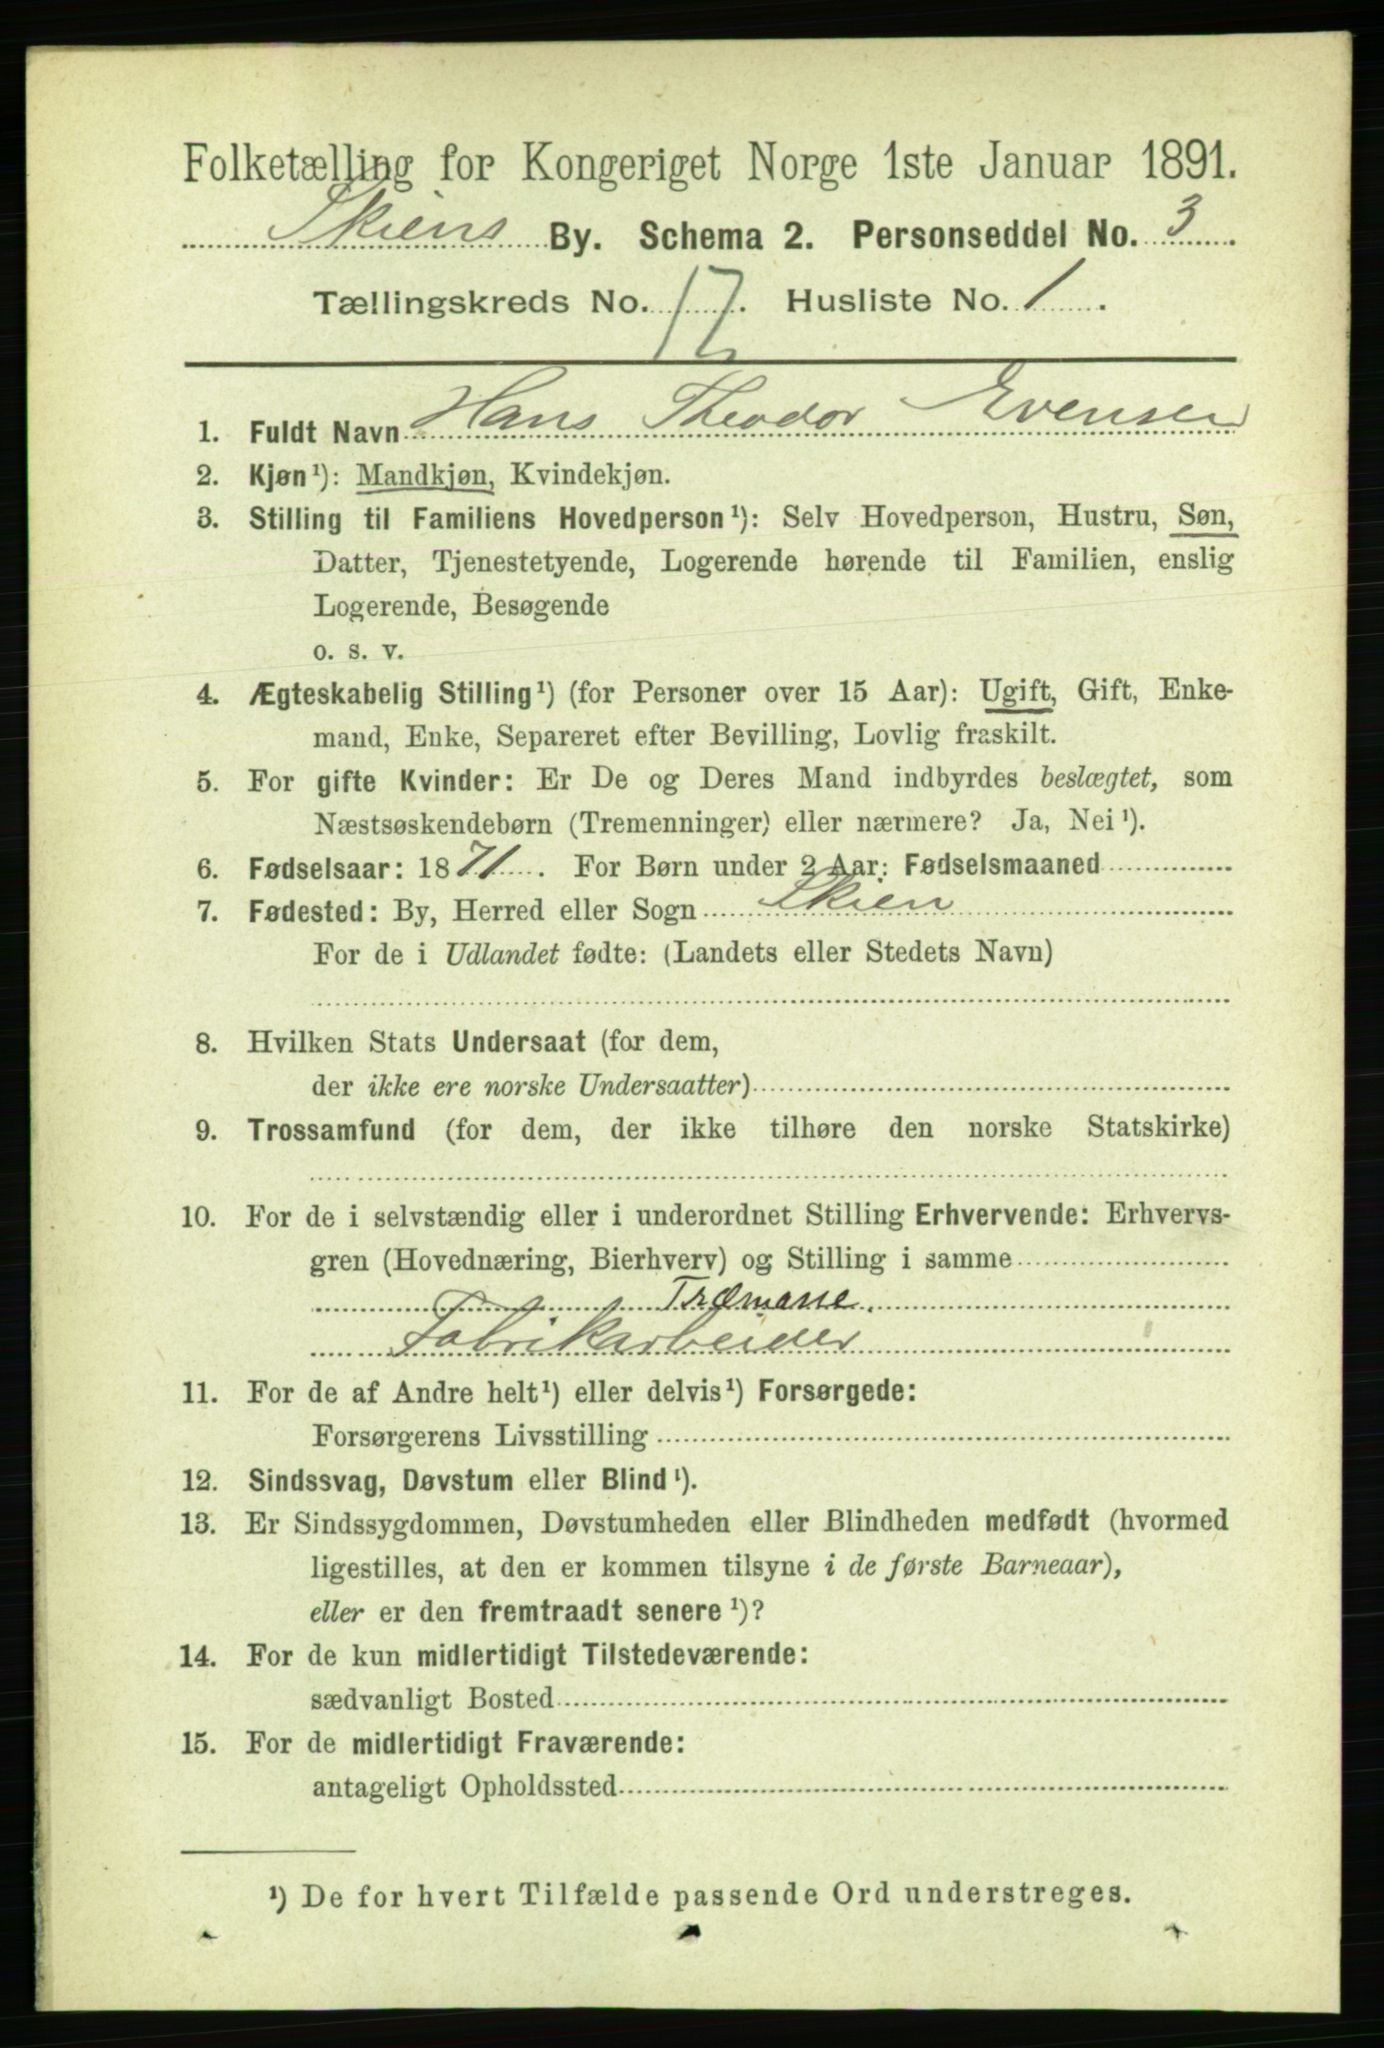 Folketælling for Kongeriget Norge 1ste Januar 1891.
Skiens By. Schema 2. Personseddel No. 3
Tællingskreds No. 12. Husliste No. 1.
1. Fuldt Navn Hans Theodor Evensen
2. Kjøn¹): Mandkjøn, Kvindekjøn.
3. Stilling til Familiens Hovedperson¹): Selv Hovedperson, Hustru, Søn,
Datter, Tjenestetyende, Logerende hørende til Familien, enslig
Logerende, Besøgende
o. s. v.
4. Ægteskabelig Stilling¹) (for Personer over 15 Aar): Ugift, Gift, Enke-
mand, Enke, Separeret efter Bevilling, Lovlig fraskilt.
5. For gifte Kvinder: Er De og Deres Mand indbyrdes beslægtet, som
Næstsøskendebørn (Tremenninger) eller nærmere? Ja, Nei¹).
6. Fødselsaar: 1871. For Børn under 2 Aar: Fødselsmaaned
7. Fødested: By, Herred eller Sogn Skien
For de i Udlandet fødte: (Landets eller Stedets Navn)
8. Hvilken Stats Undersaat (for dem,
der ikke ere norske Undersaatter)
9. Trossamfund (for dem, der ikke tilhøre den norske Statskirke)
10. For de i selvstændig eller i underordnet Stilling Erhvervende: Erhvervs-
gren (Hovednæring, Bierhverv) og Stilling i samme
Træmasse.
Fabrikarbeider
11. For de af Andre helt¹) eller delvis¹) Forsørgede:
Forsørgerens Livsstilling
12. Sindssvag, Døvstum eller Blind¹).
13. Er Sindssygdommen, Døvstumheden eller Blindheden medfødt (hvormed
ligestilles, at den er kommen tilsyne i de første Barneaar),
eller er den fremtraadt senere¹)?
14. For de kun midlertidigt Tilstedeværende:
sædvanligt Bosted
15. For de midlertidigt Fraværende:
antageligt Opholdssted
¹) De for hvert Tilfælde passende Ord understreges.